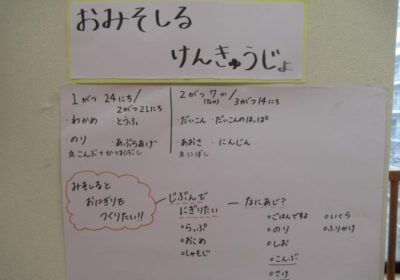 おみそしる
けんきゅうじょ
1がつ 24にち/
2がつ21にち
・わかめ ・とうふ
・のり ・あぶらあげ
☆こんぶ+かつおぶし
2がつ 7か/
(なの)
3がつ14にち
・だいこん ・だいこんのはっぱ
・あおさ ・にんじん
☆にぼし
みそしると
おにぎりも
つくりたい!!
じぶんで
にぎりたい
○らっぷ
○おこめ
○しゃもじ
なにあじ?
○ごはんですよ ○いくら
○のり ○ふりかけ
○しお
○こんぶ
○さけ